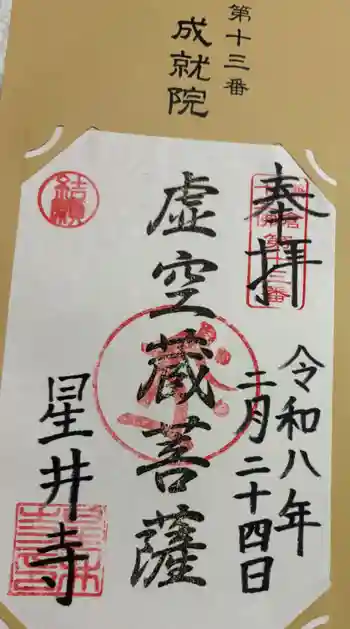 第十三番
成就院
奉拝
第十三番
令和八年
二月二十四日
虚空蔵菩薩
結願
星井寺